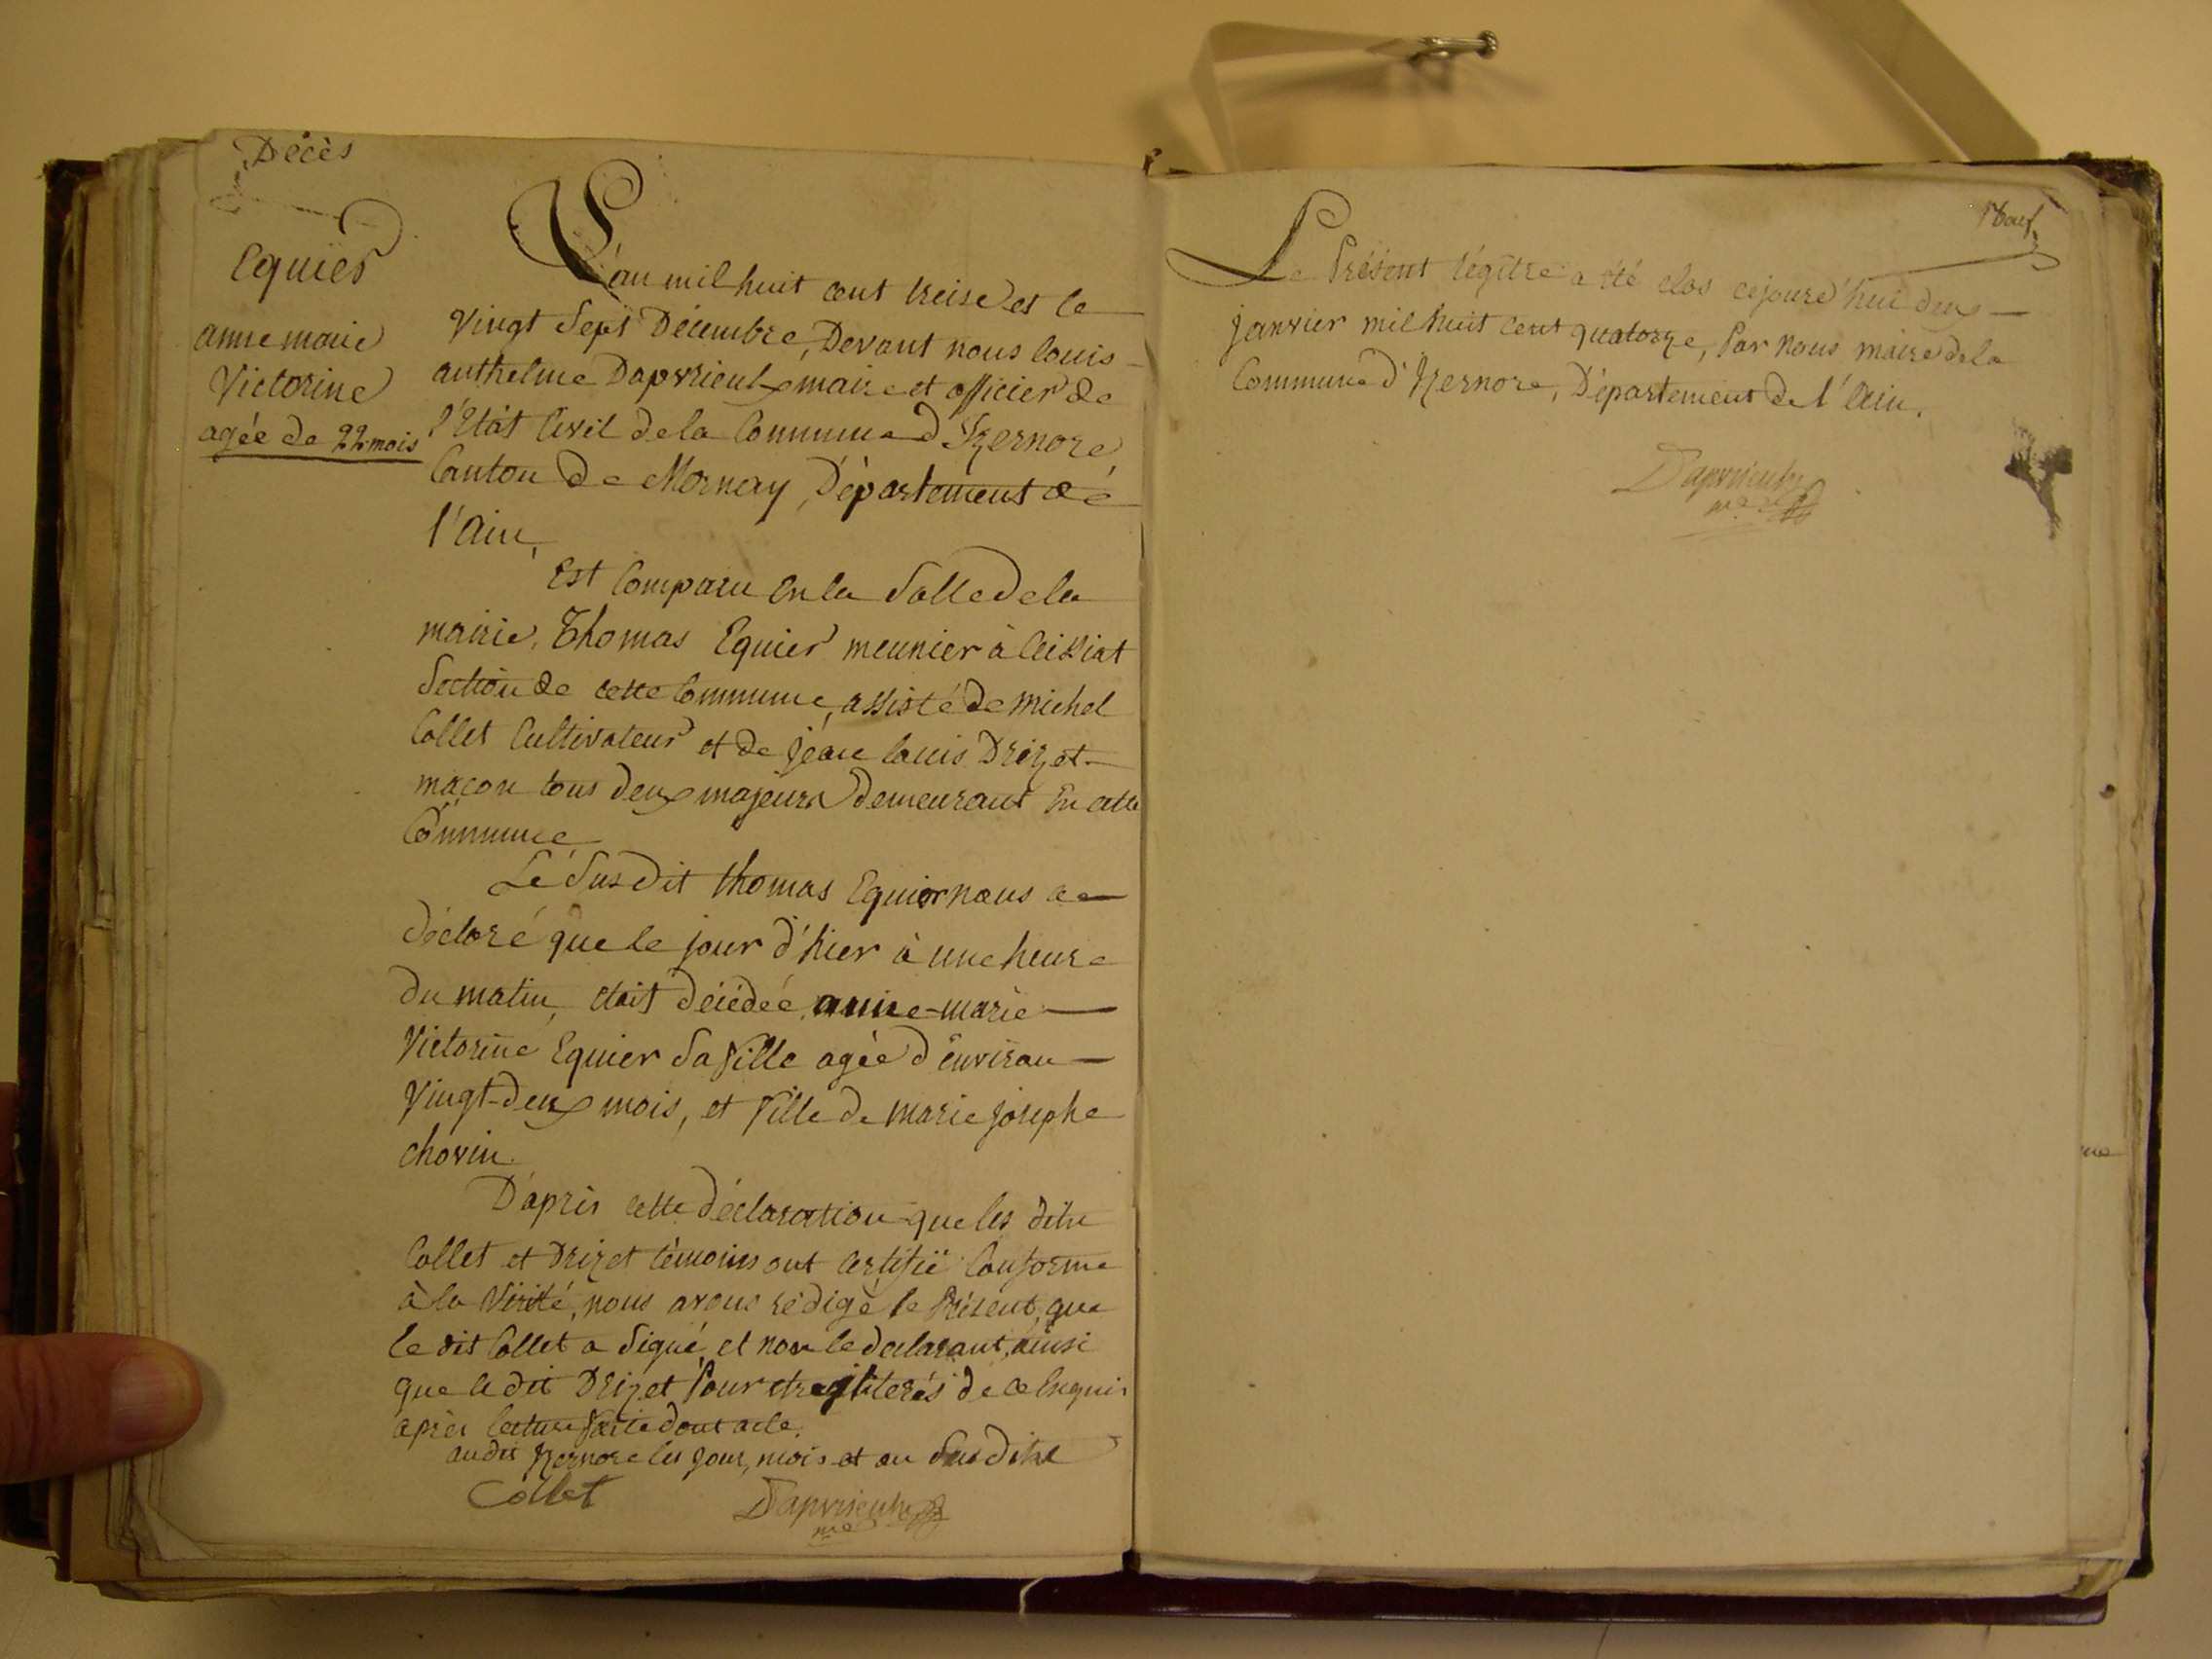 Décès
Equier
anne marie
Victorine
agée de 22 mois
L'an mil huit cent treise et le
vingt sept Décembre, Devant nous louis
anthelme Dapvrieulx maire et officier de
l'Etat Civil de la Commune d'Izernore
Canton de Mornay, Département de
l'Ain,
Est Comparu en la Salle de la
mairie, Thomas Equier meunier à Ceissiat
Section de cette Commune, assisté de michel
Collet Cultivateur et de jean louis Drizet
maçon tous deux majeurs demeurant En cette
Commune
Le Susdit thomas Equier nous a
déclaré que le jour d'hier à une heure
du matin, était décédée anne-marie
Victorine Equier Sa fille agée d'environ
vingt-deux mois, et fille de marie josephe
chovin.
D'après cette déclaration que les dits
Collet et Drizet témoins ont certifié Conforme
à la vérité, nous avons rédigé le Présent, que
le dit Collet a Signé, et non le declarant, ainsi
que le dit Drizet Pour être illiterés de ce Enquis
après lecture faite dont acte.
au dit Izernore les jour, mois et an Susdits
Collet Dapvrieulx
me
Le Présent régitre a été clos cejourd'hui deux
janvier mil huit cent quatorze, Par nous maire de la
Commune d'Izernore, Département de l'Ain.
Dapvrieulx